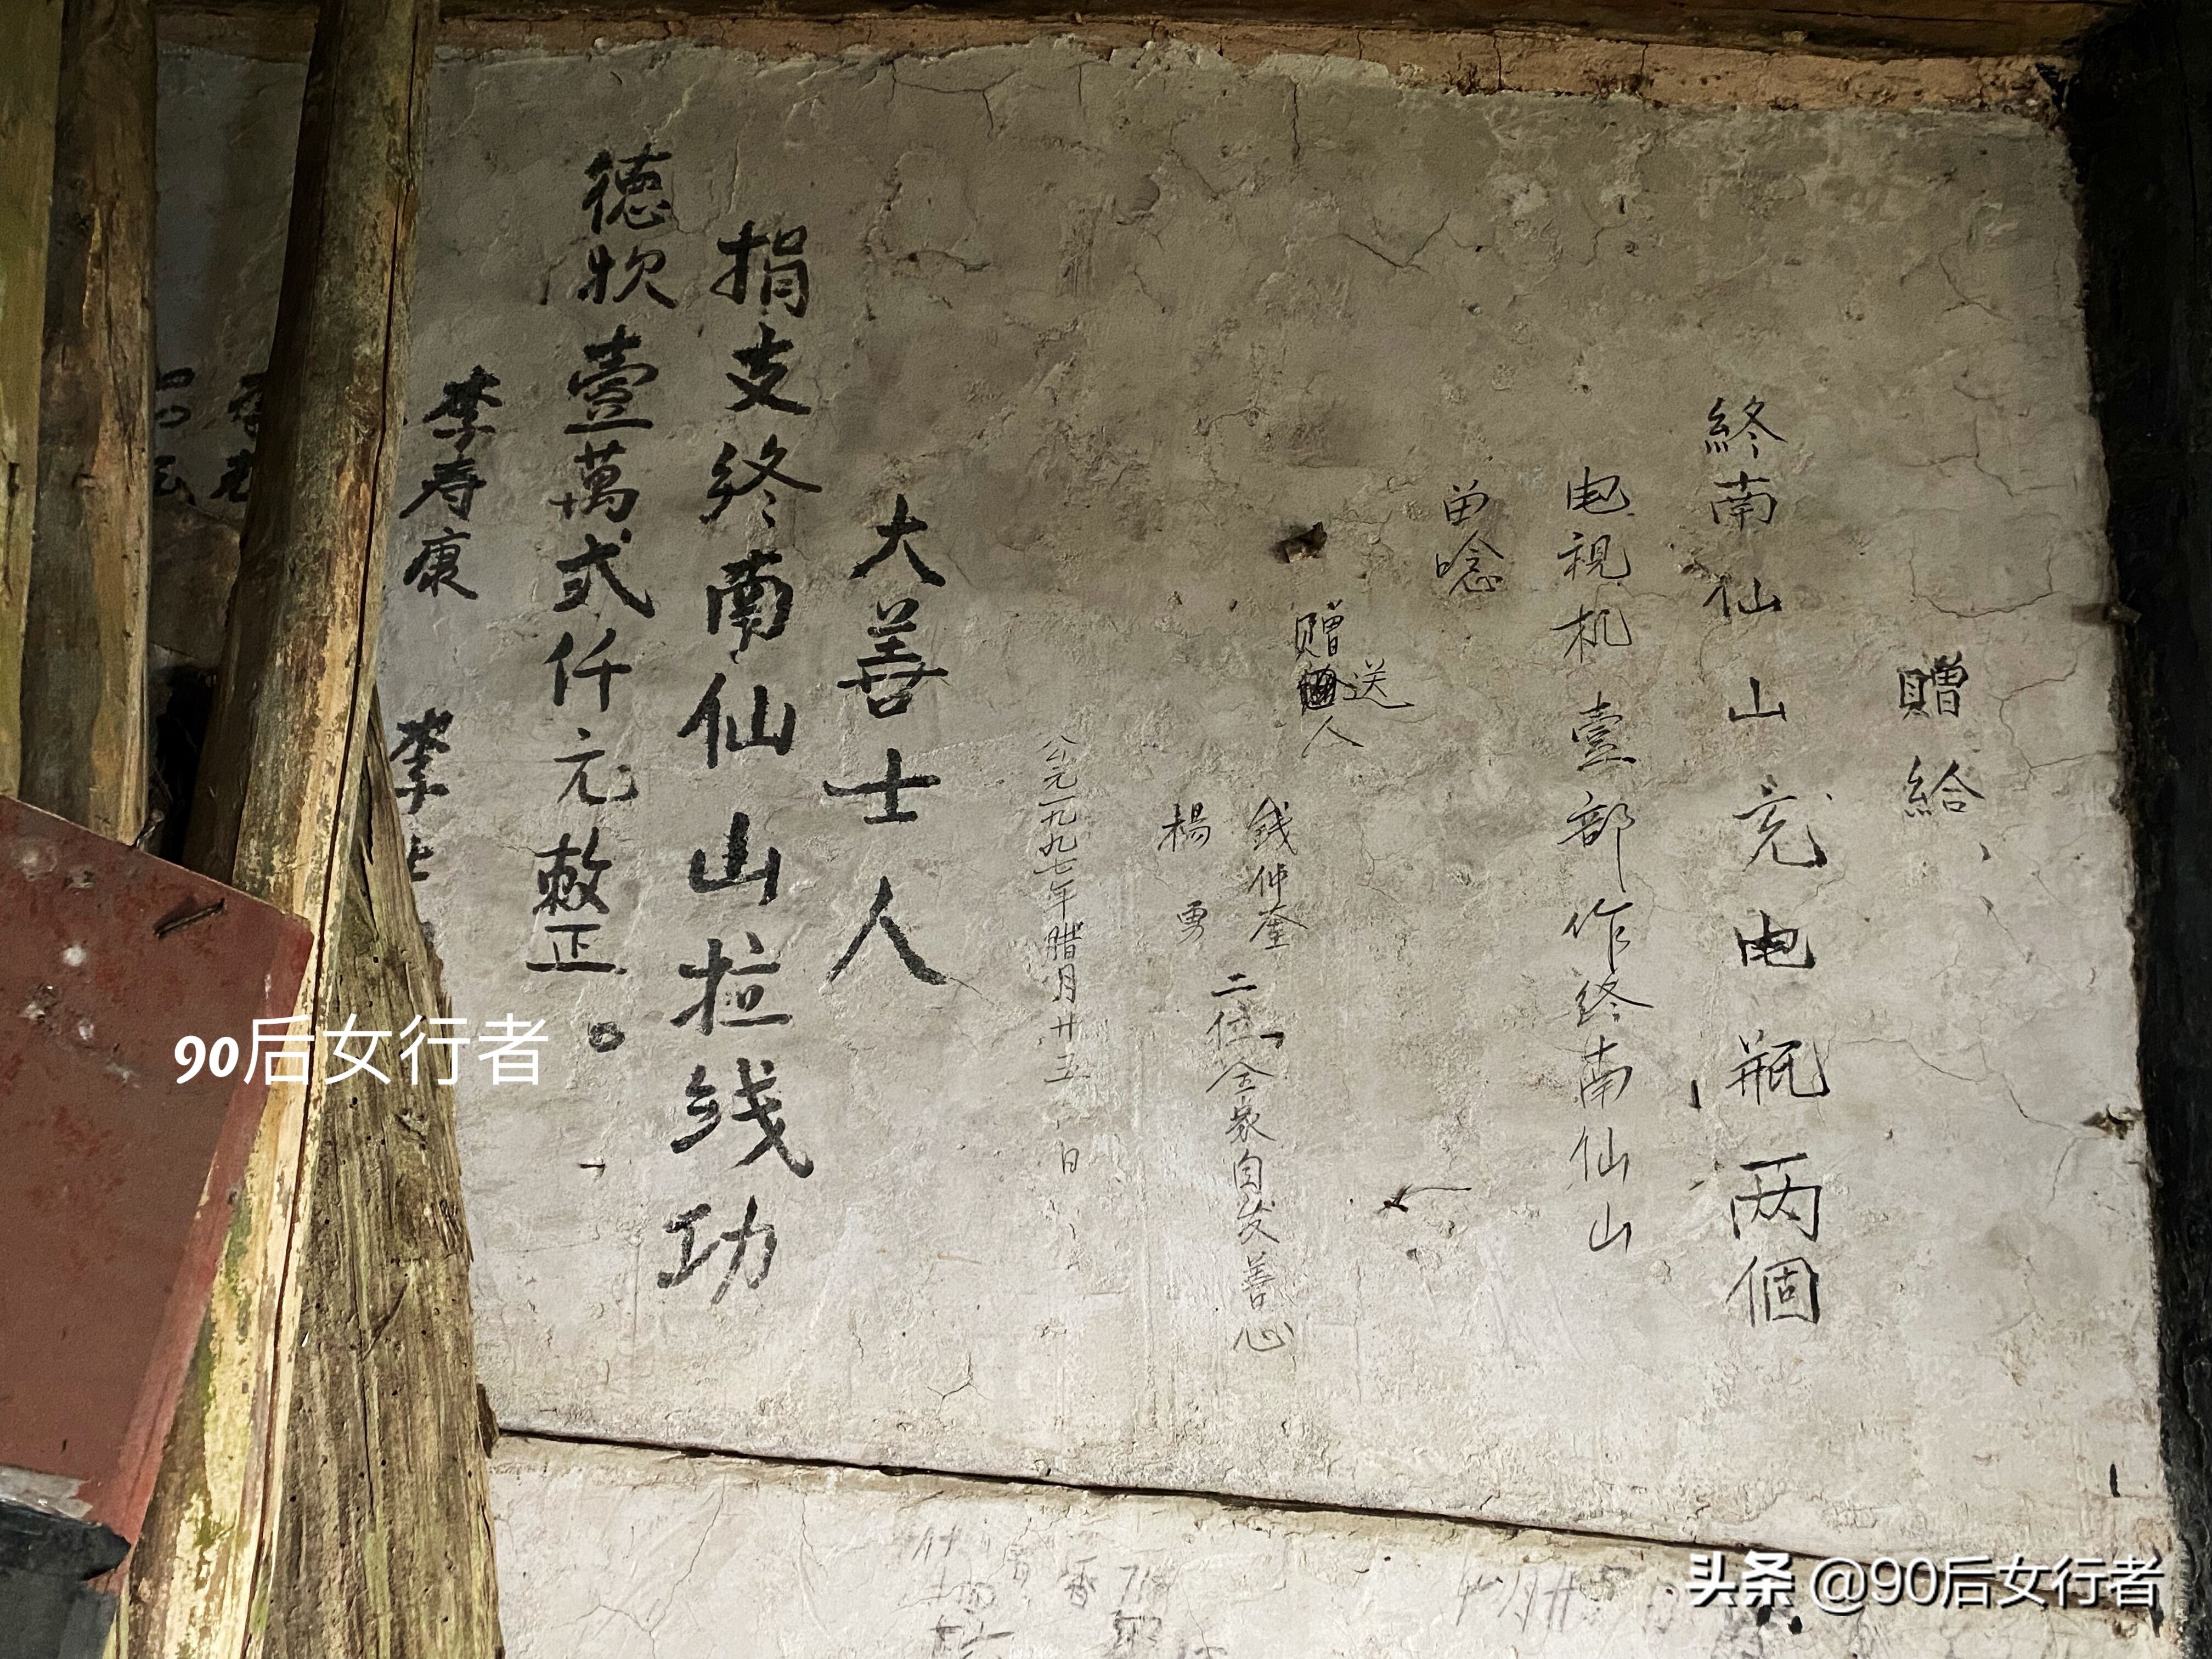 赠给
終南仙山充电瓶两個
电视机壹部作终南仙山
留唸
赠送
人
錢仲奎
楊勇
二位全家自发善心
公元一九九七年腊月廿五日
大善士人
捐支终南仙山拉线功
德欤壹萬弍仟元敕正。
李寿康
李
90后女行者
头条 @90后女行者